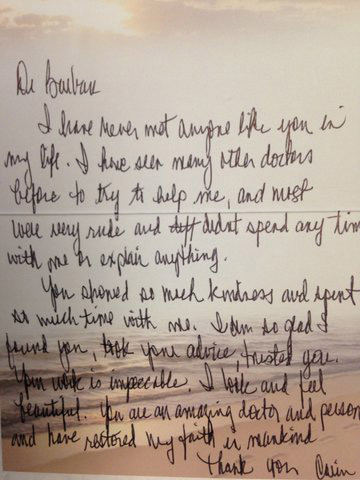 Dr Barbara
I have never met anyone like you in
my life. I have seen many other doctors
before to try to help me, and most
were very rude and didnt spend any time
with me or explain anything.
You showed so much kindness and spent
so much time with me. I am so glad I
found you, took your advice, trusted you.
Your work is impeccible. I look and feel
beautiful. You are an amazing doctor and person
and have restored my faith in mankind
Thank you